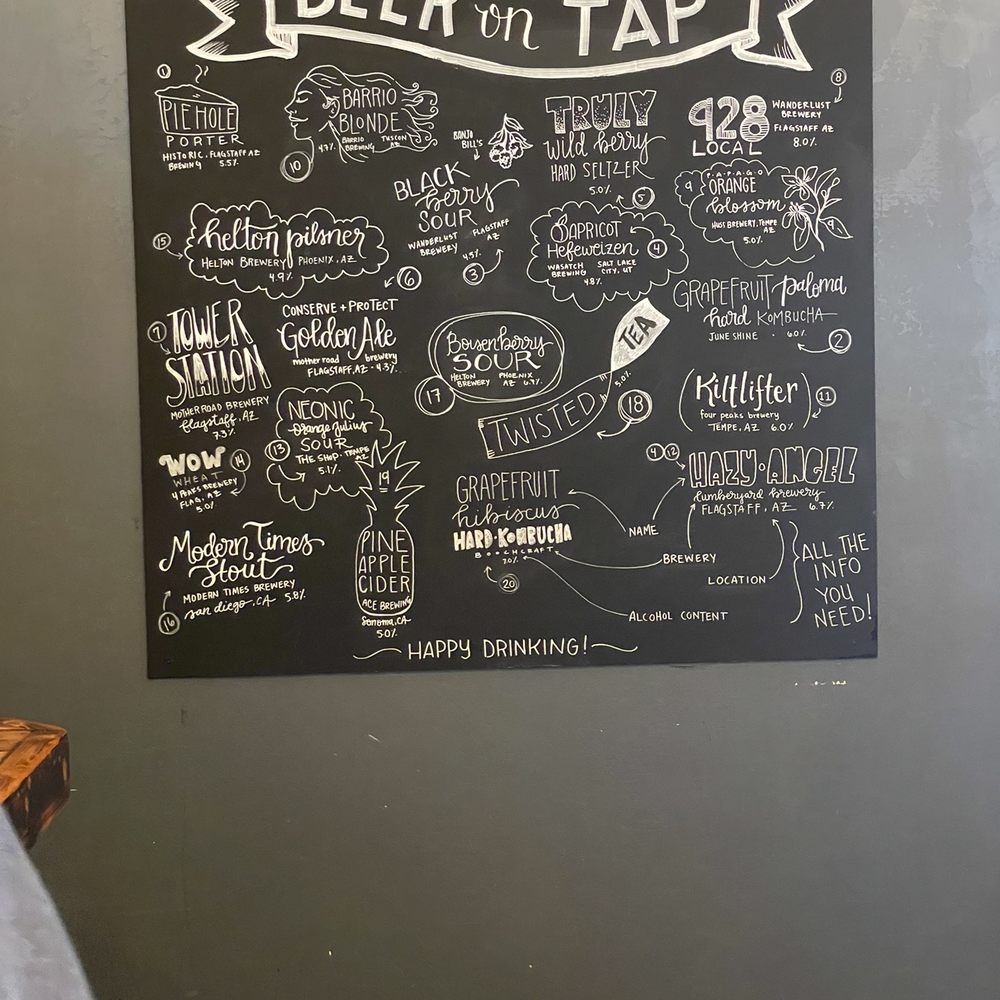 BEER on TAP
1
PIEHOLE
PORTER
HISTORIC. FLAGSTAFF AZ
BREWING 5.5%
BARRIO
BLONDE
BARRIO TUSCON
BREWING AZ
4.7%
10
BANJO
BILL'S
BLACK
berry
SOUR
WANDERLUST FLAGSTAFF
BREWERY AZ
4.5%
3
TRULY
wild berry
HARD SELTZER
5.0%
5
928
LOCAL
8
WANDERLUST
BREWERY
FLAGSTAFF AZ
8.0%
PAPAGO
9 ORANGE
blossom
HUSS BREWERY, TEMPE
AZ
5.0%
15
helton pilsner
HELTON BREWERY PHOENIX, AZ
4.9%
APRICOT
Hefeweizen
4
WASATCH SALT LAKE
BREWING CITY, UT
4.8%
6
CONSERVE + PROTECT
Golden Ale
mother road brewery
FLAGSTAFF, AZ - 4.3%
7
TOWER
STATION
MOTHER ROAD BREWERY
flagstaff, AZ
7.3%
Boisenberry
SOUR
HELTON PHOENIX
BREWERY AZ 6.7%
17
TWISTED
TEA
5.0%
18
GRAPEFRUIT paloma
hard KOMBUCHA
JUNE SHINE · 6.0%
2
Kiltlifter
four peaks brewery
TEMPE, AZ 6.0%
11
NEONIC
orange julius
SOUR
THE SHOP · TEMPE
AZ
5.1%
13
WOW
WHEAT
4 PEAKS BREWERY
FLAG, AZ
5.0%
14
19
PINE
APPLE
CIDER
ACE BREWING
Sonoma, CA
5.0%
GRAPEFRUIT
hibiscus
HARD·KOMBUCHA
BOOCHCRAFT
7.0%
20
4 12
HAZY·ANGEL
lumberyard brewery
FLAGSTAFF, AZ 6.7%
Modern Times
Stout
MODERN TIMES BREWERY
san diego, CA 5.8%
16
NAME
BREWERY
LOCATION
ALCOHOL CONTENT
ALL THE
INFO
YOU
NEED!
HAPPY DRINKING!